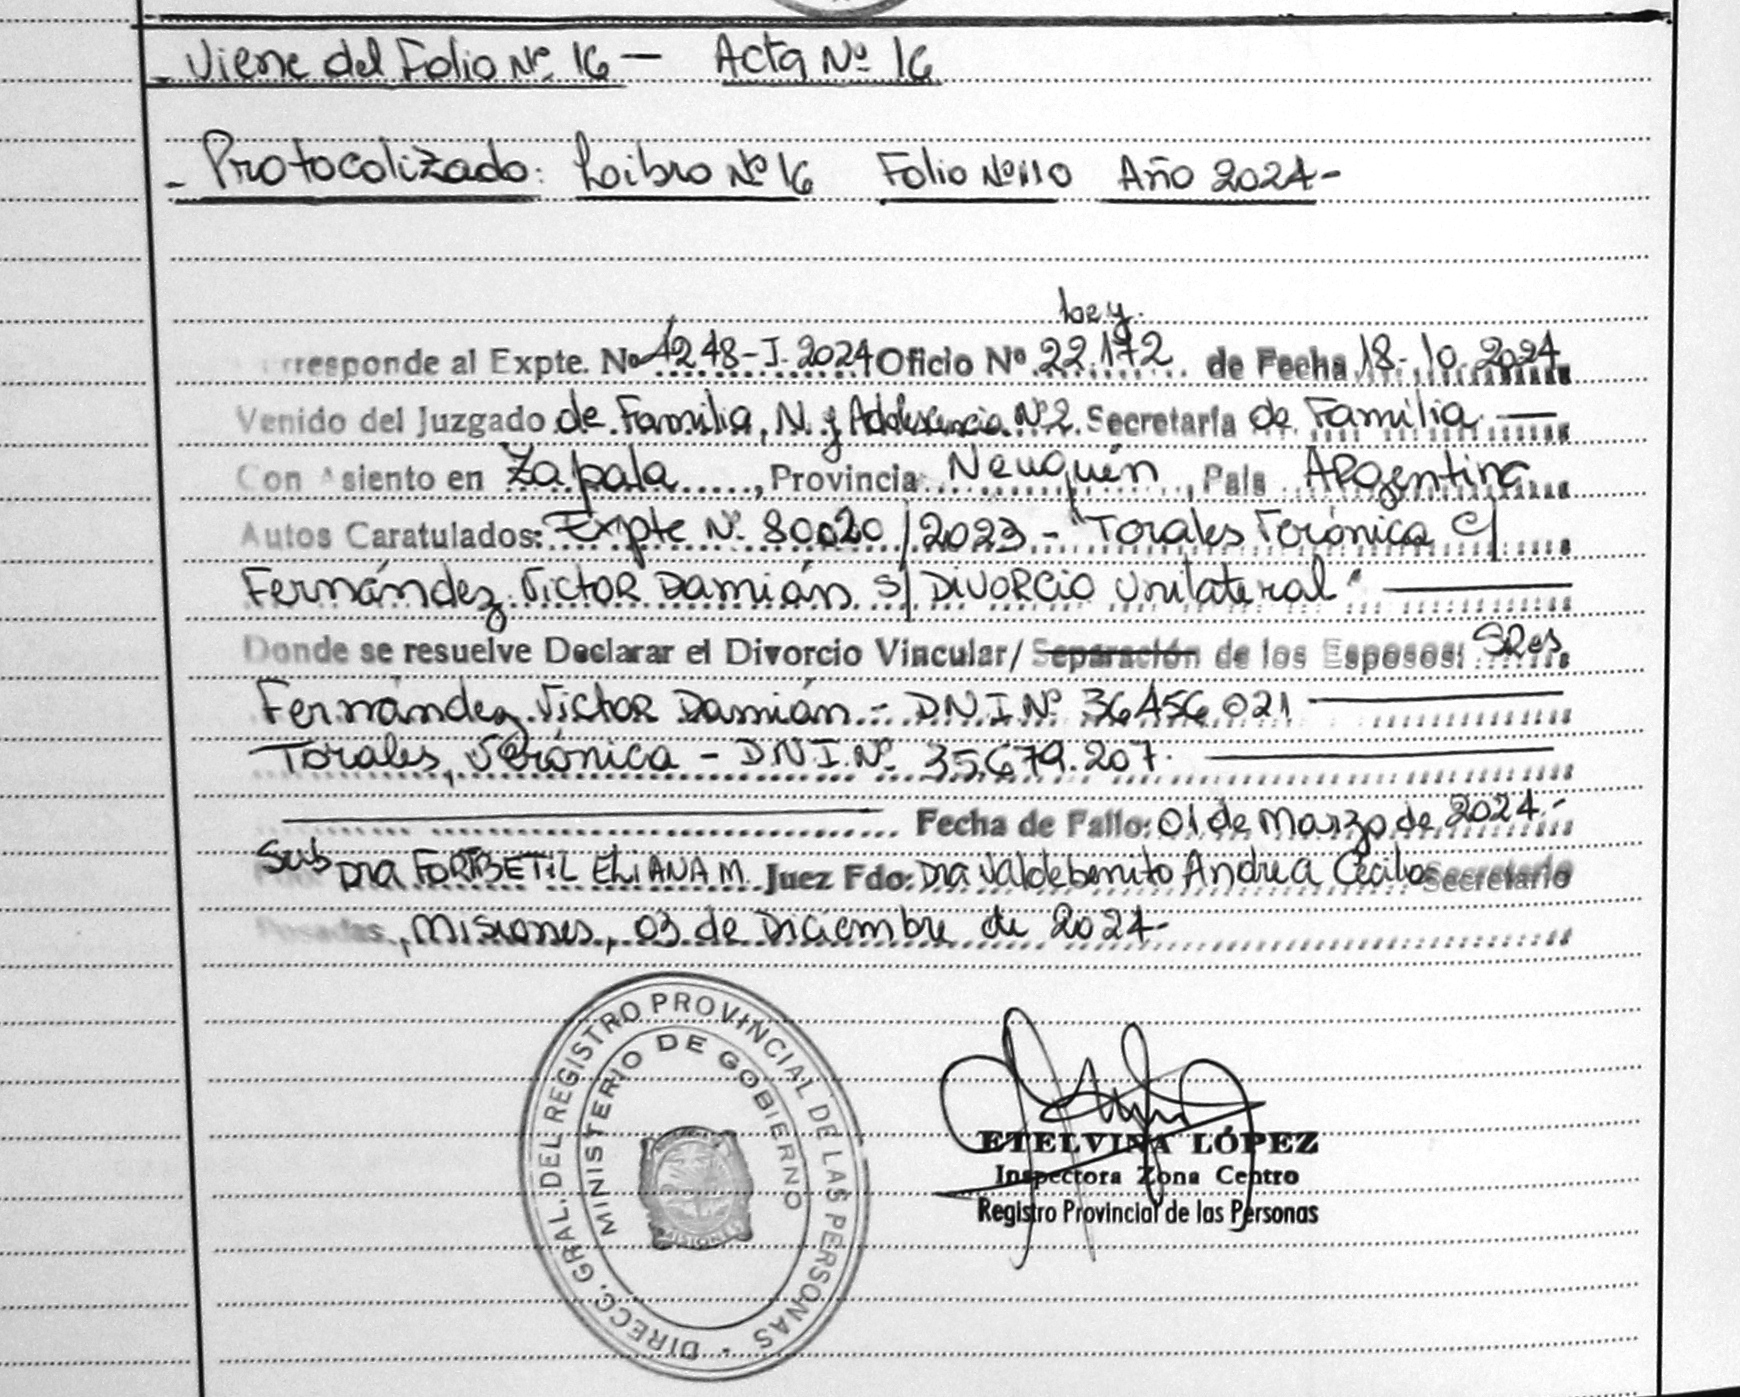 - Viene del Folio Nº 16 - Acta Nº 16
- Protocolizado: Libro Nº 16 Folio Nº 110 Año 2024-
Ley
rresponde al Expte. Nº 4248-I-2024 Oficio Nº 22.172 de Fecha 18-10-2024
Venido del Juzgado de Familia, N. y Adolescencia Nº 2. Secretaría de Familia
Con Asiento en Zapala, Provincia: Neuquén, País Argentina
Autos Caratulados: Expte Nº 80020/2023 - "Torales Verónica c/
Fernández Victor Damián s/ Divorcio Unilateral"
Donde se resuelve Declarar el Divorcio Vincular/ Separación de los Esposos: SRes
Fernández, Victor Damián - D.N.I Nº 36456021
Torales, Verónica - D.N.I. Nº 35.679.207.
Fecha de Fallo: 01 de Marzo de 2024.-
Sub Dra ELIANA M. Juez Fdo: Dra Valdebenito Andrea Cecilia Secretario
Posadas, Misiones, 03 de Diciembre de 2024-
DIRECC. GRAL. DEL REGISTRO PROVINCIAL DE LAS PERSONAS
MINISTERIO DE GOBIERNO
MISIONES
ETELVINA LÓPEZ
Inspectora Zona Centro
Registro Provincial de las Personas